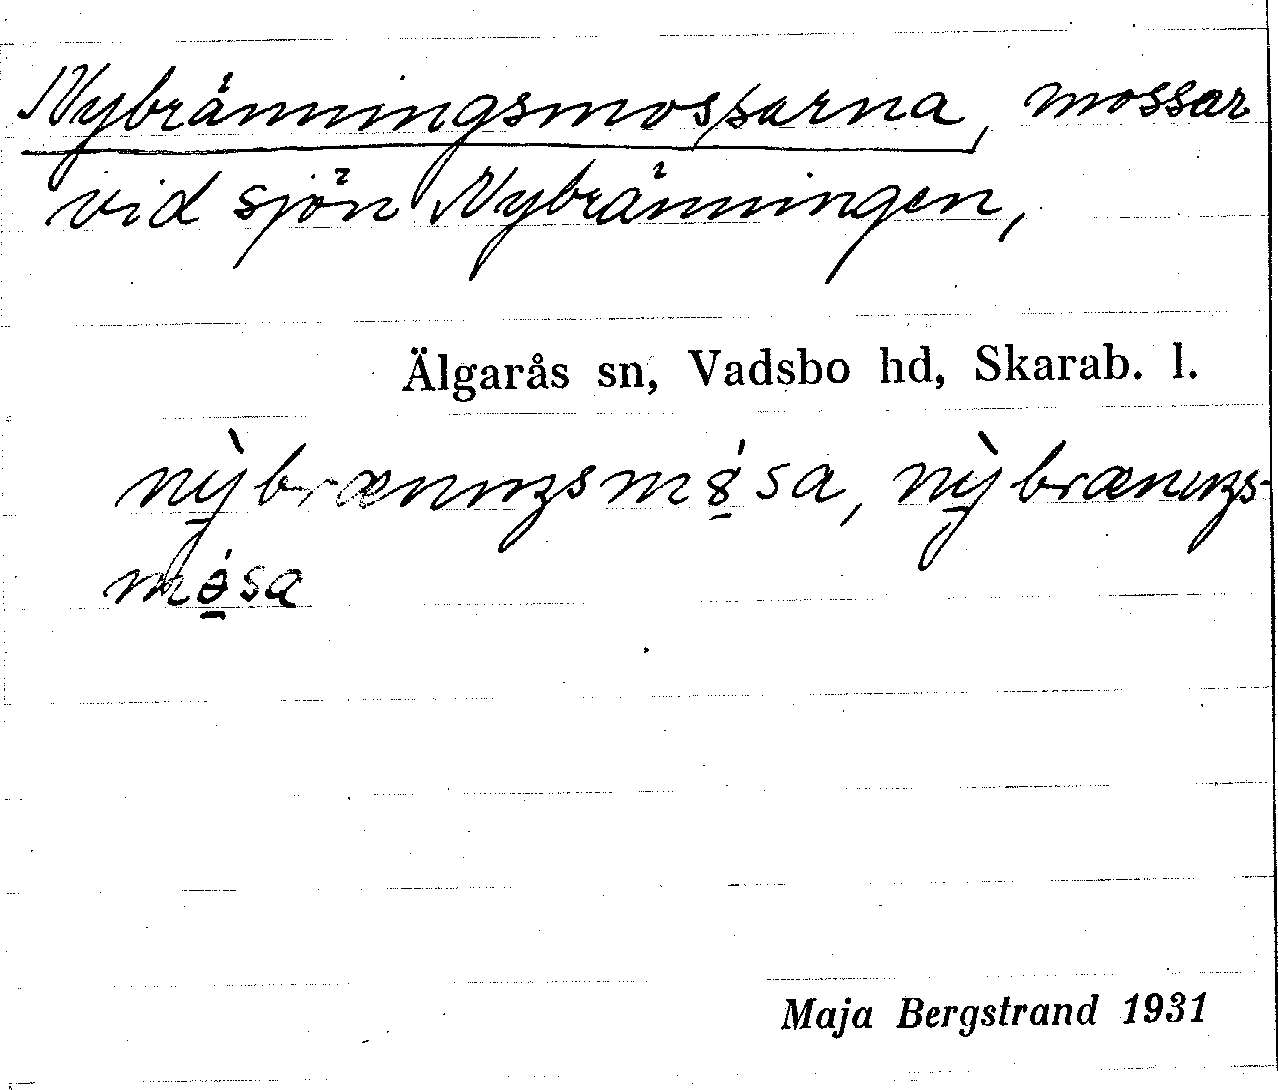 Nybränningsmossarna, mossar
vid sjön Nybränningen,
Älgarås sn, Vadsbo hd, Skarab. l.
nỳ̱brænɪŋsmó̱sa, nỳ̱brænɪŋs-
mə̱́sa
Maja Bergstrand 1931